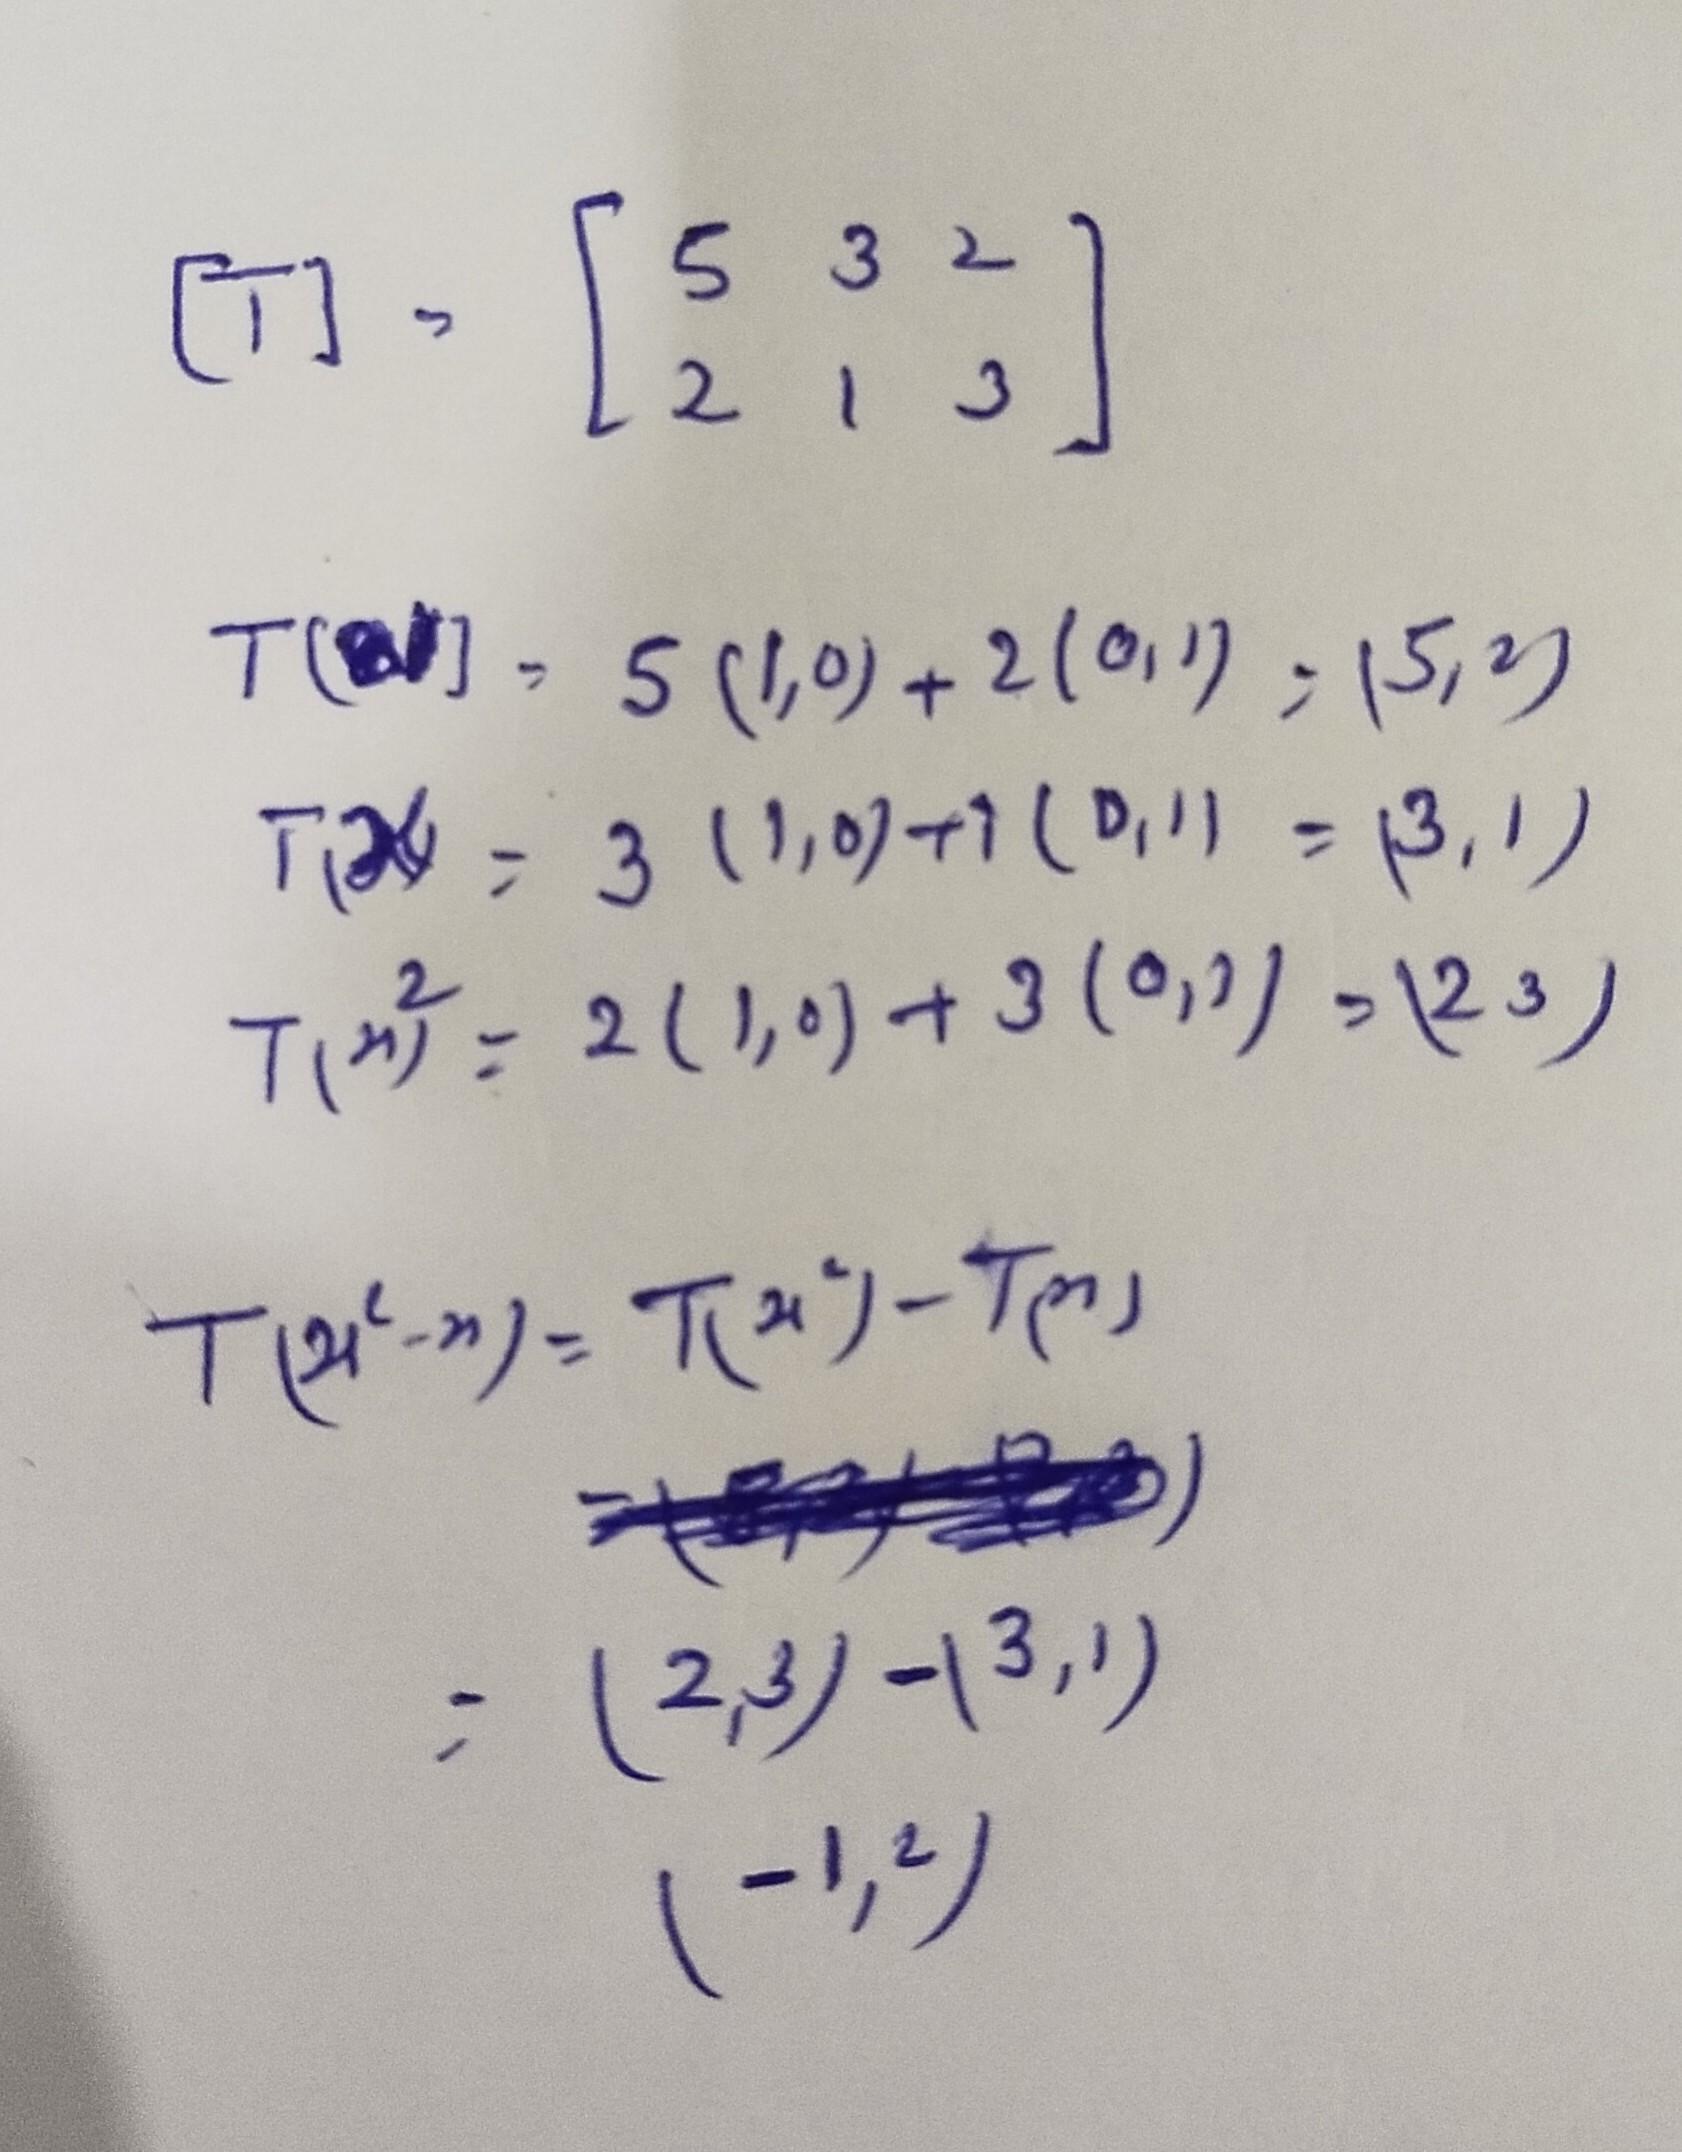 [T] = [ 5 3 2
2 1 3 ]
T(1) = 5 (1,0) + 2 (0,1) = (5,2)
T(x) = 3 (1,0) + 1 (0,1) = (3,1)
T(x)² = 2 (1,0) + 3 (0,1) = (2 3)
T(x²-x) = T(x²) - T(x)
= (2,3) - (3,1)
(-1,2)